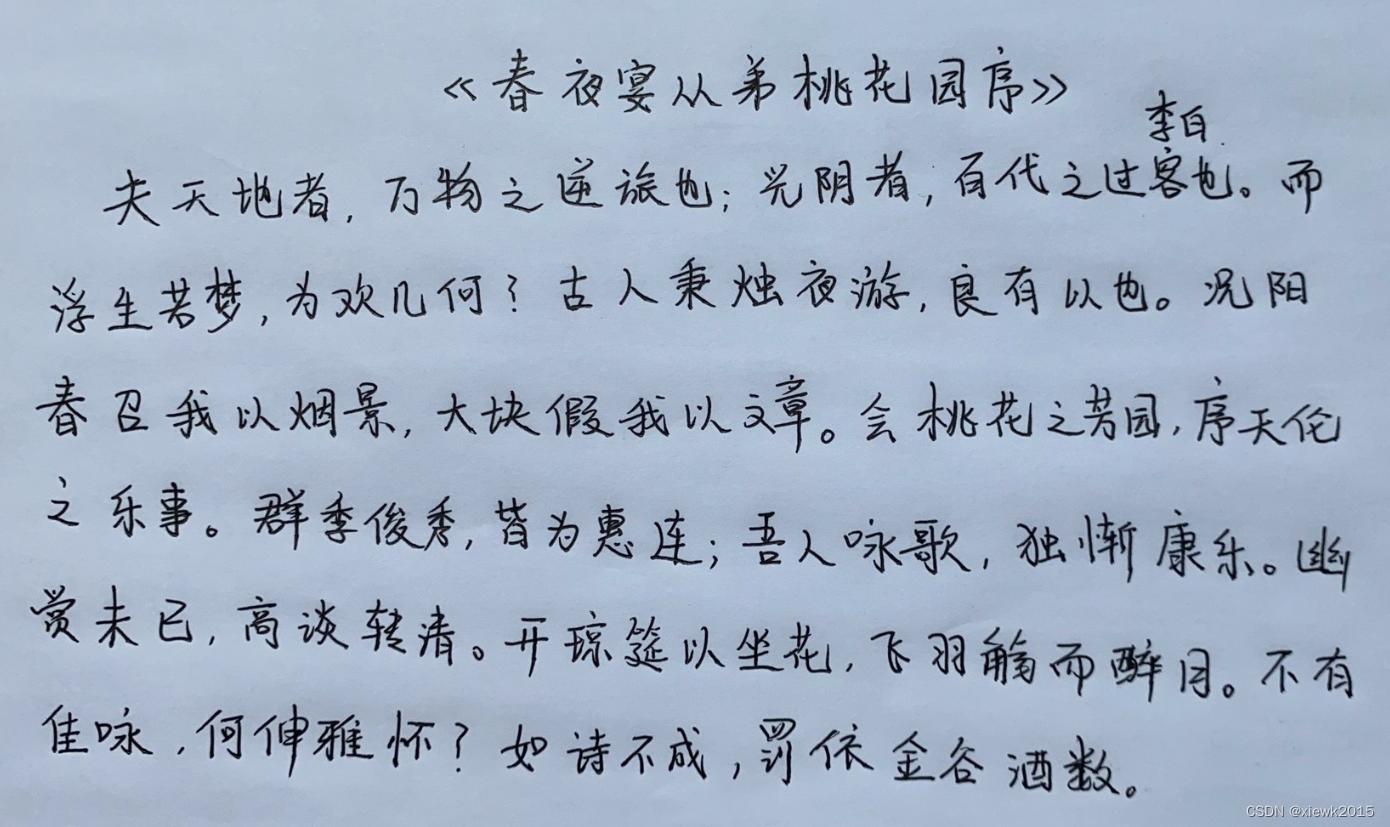 《春夜宴从弟桃花园序》
李白
夫天地者,万物之逆旅也;光阴者,百代之过客也。而
浮生若梦,为欢几何?古人秉烛夜游,良有以也。况阳
春召我以烟景,大块假我以文章。会桃花之芳园,序天伦
之乐事。群季俊秀,皆为惠连;吾人咏歌,独惭康乐。幽
赏未已,高谈转清。开琼筵以坐花,飞羽觞而醉月。不有
佳咏,何伸雅怀?如诗不成,罚依金谷酒数。
CSDN @xiewk2015